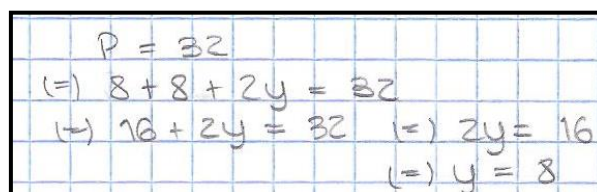 P = 32
(=) 8 + 8 + 2y = 32
(=) 16 + 2y = 32 (=) 2y = 16
(=) y = 8